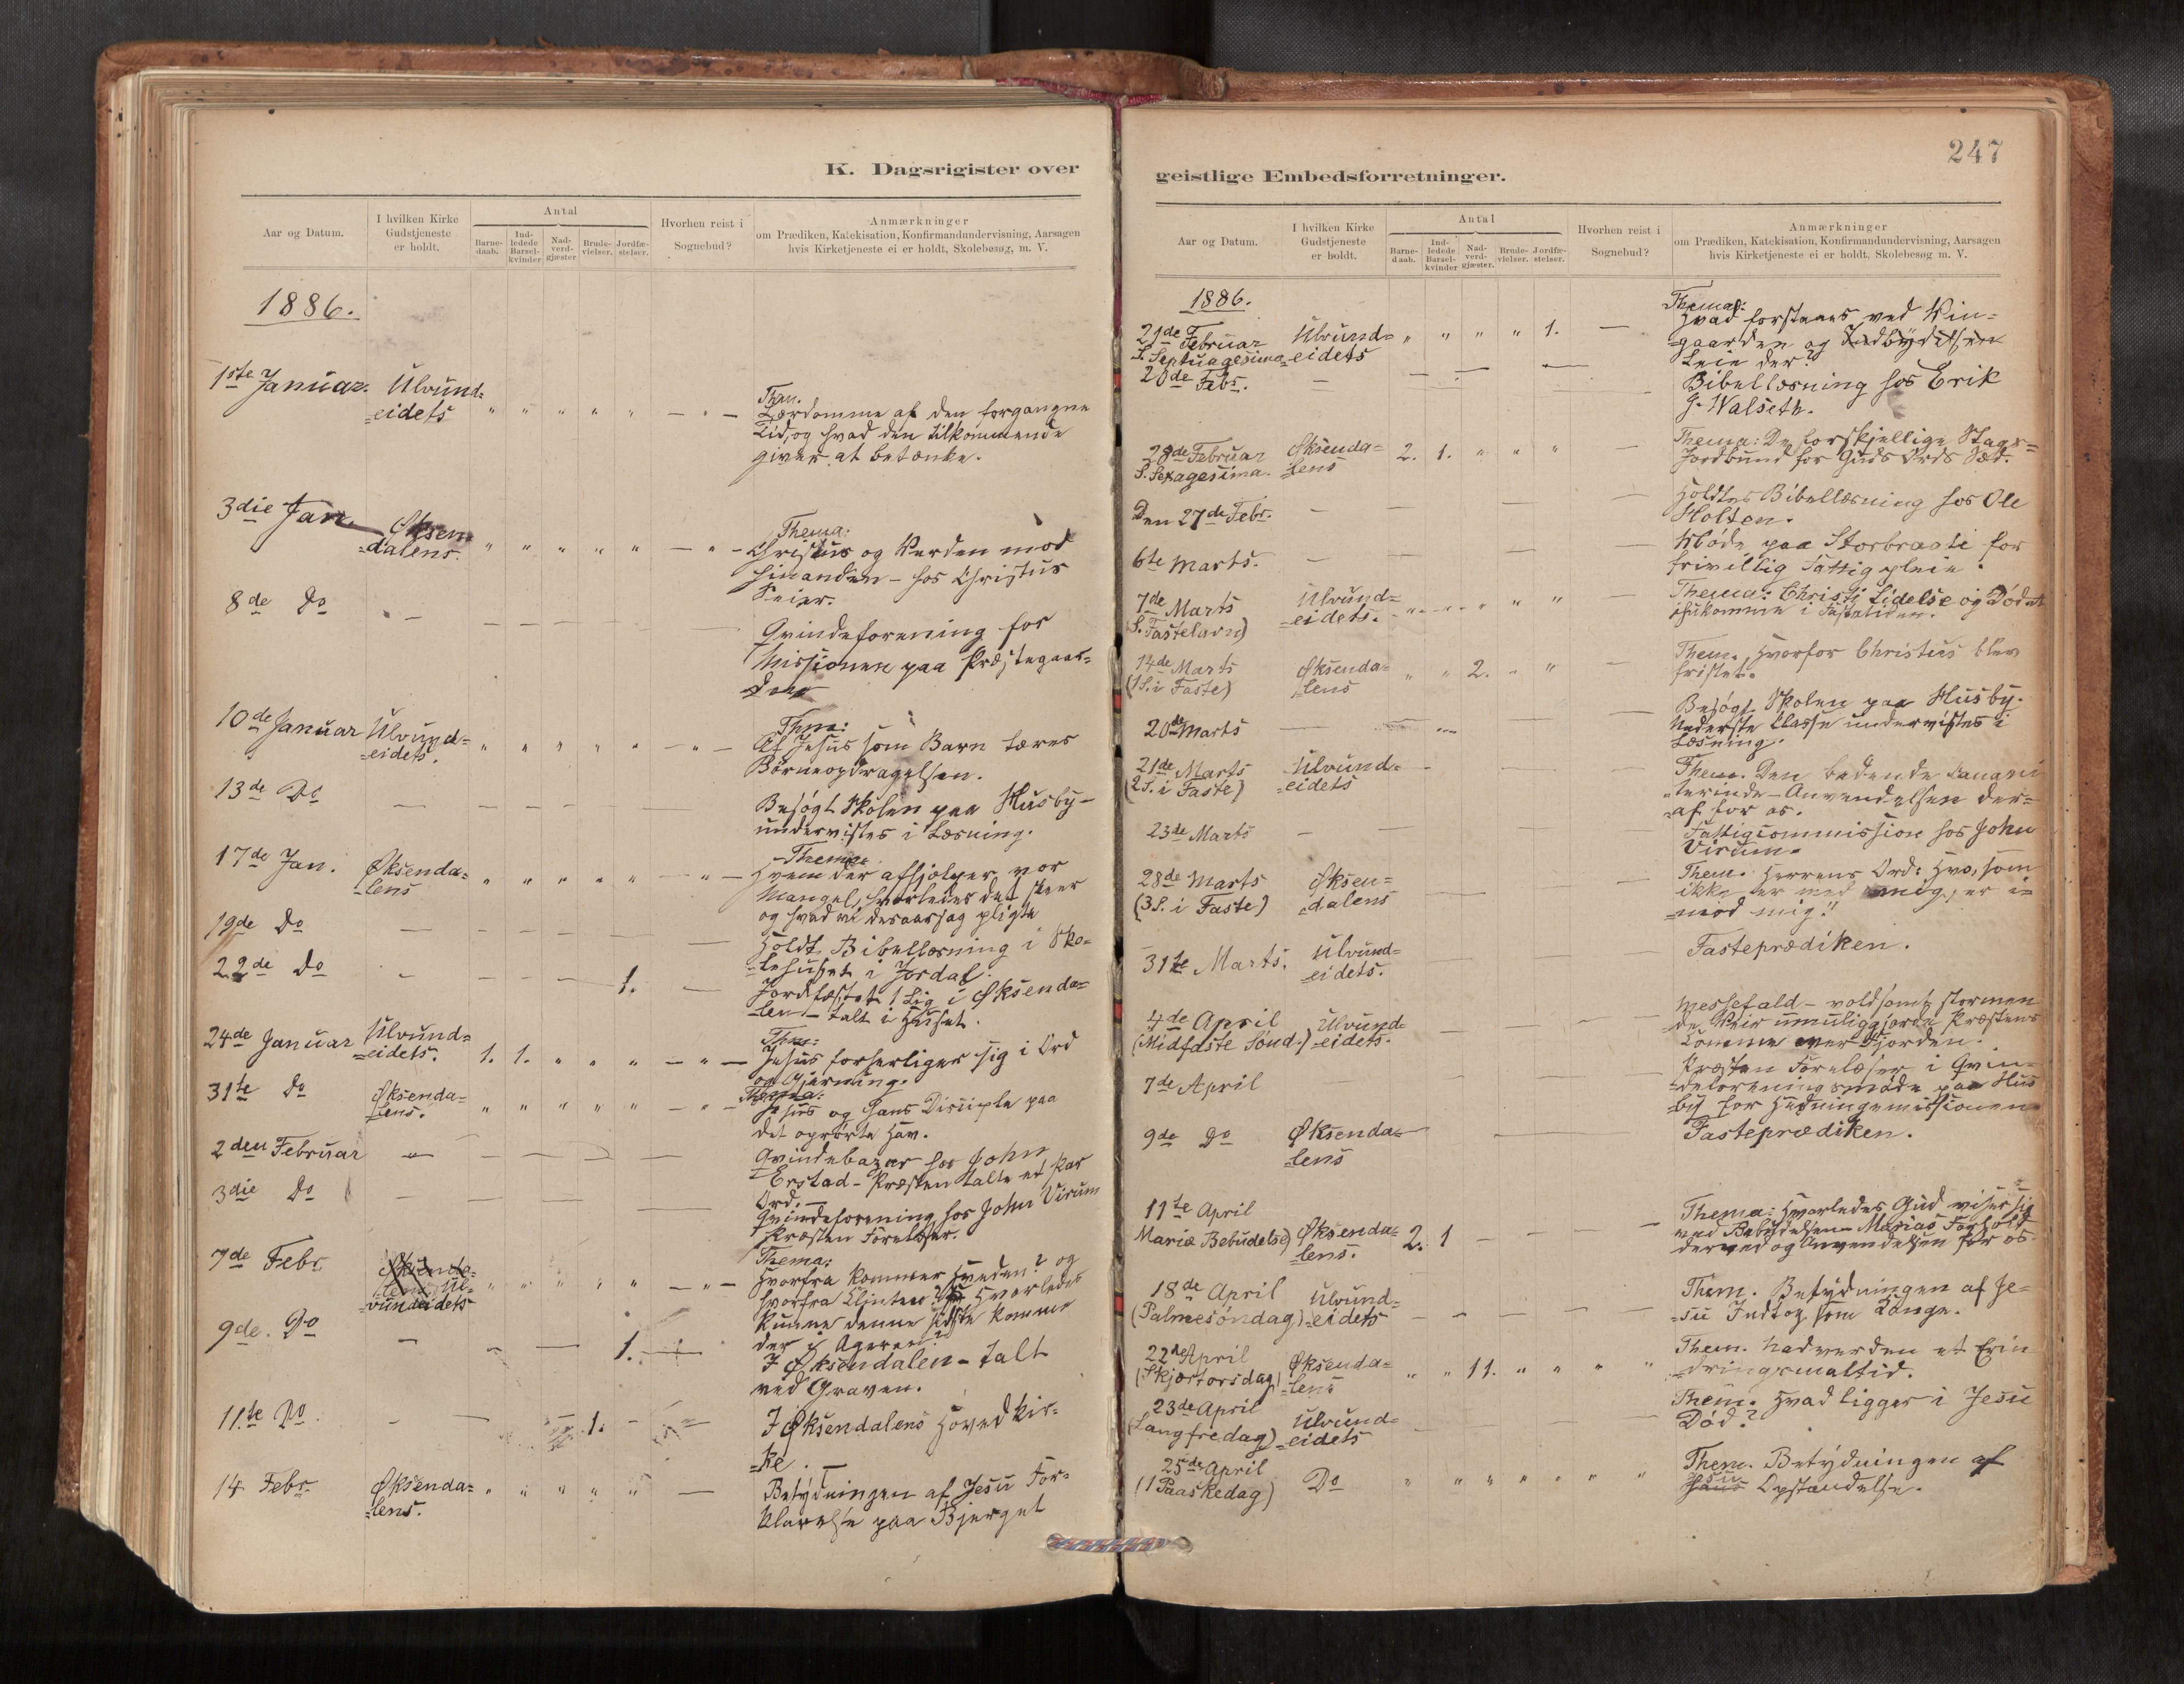 K. Dagsrigister over
Aar og Datum.
I hvilken Kirke
Gudstjeneste
er holdt.
Antal
Barne-
daab.
Ind-
ledede
Barsel-
kvinder
Nad-
verd-
gjæster
Brude-
vielser.
Jordfæ-
stelser.
Hvorhen reist i
Sognebud?
Anmærkninger
om Prædiken, Katekisation, Konfirmandundervisning, Aarsagen
hvis Kirketjeneste ei er holdt, Skolebesøg, m. V.
1886.
1ste Januar. Ulvund-
-eidets " " " " " — " —
Them.
Lærdomme af den forgangne
Tid, og hvad den tilkommende
giver at betænke.
3die Jan. Øksen-
-dalens. " " " " " — " —
Thema:
Christus og Verden mod
hinanden – hos Christus
Seier.
8de Do —
Qvindeforening for
Missionen paa Præstegaar-
den
10de Januar Ulvund-
-eidets. " " " " " — " —
Them:
Af Jesus som Barn læres
Børneopdragelsen.
13de Do —
Besøgt Skolen paa Husby –
undervistes i Læsning.
17de Jan. Øksenda-
-lens " " " " " — " —
Thema:
Hvem der afhjælper vor
Mangel, hvorledes det skeer
og hvad vi desaarsag pligte
19de Do —
Holdt Bibellæsning i Sko-
-lehuset i Jordal.
22de Do — 1. —
Jordfæstet 1 Lig i Øksenda-
-len – talt i Huset.
24de Januar Ulvund-
-eidets. 1. 1. " " " — " —
Them:
Jesus forherliger sig i Ord
og Gjerning.
31te Do Øksenda-
-lens. " " " " " — " —
Thema:
Jesus og hans Disciple paa
det oprørte Hav.
2den Februar —
Qvindebazar hos John
Erstad – Præsten talte et Par
Ord. —
3die Do —
Qvindeforening hos John Virum
Præsten Forelæser.
7de Febr. Øksenda-
-lens, Ul-
-vundeidets " " " " " — " —
Thema:
Hvorfra kommer Hveden? og
hvorfra Klinten? Hvorledes
kunne denne sidste komme
der i Ageren?
9de. Do — 1. —
I Øksendalen – talt
ved Graven.
11te Do. — 1. —
I Øksendalens Hovedkir-
-ke. —
14 Febr. Øksenda-
-lens. " " " " " —
Betydningen af Jesu For-
klarelse paa Bjerget
247
geistlige Embedsforretninger.
Aar og Datum.
I hvilken Kirke
Gudstjeneste
er holdt.
Antal
Barne-
daab.
Ind-
ledede
Barsel-
kvinder
Nad-
verd-
gjæster.
Brude-
vielser.
Jordfæ-
stelser.
Hvorhen reist i
Sognebud?
Anmærkninger
om Prædiken, Katekisation, Konfirmandundervisning, Aarsagen
hvis Kirketjeneste ei er holdt, Skolebesøg m. V.
1886.
21de Februar Ulvund-
S. Septuagesima -eidets " " " " 1. —
Thema:
Hvad forstaaes ved Vin-
gaarden og Indbydelsen
Leie der?
20de Febr. —
Bibellæsning hos Erik
J. Walseth.
28de Februar Øksenda-
S. Sexagesima. -lens 2. 1. " " " —
Thema: De forskjellige Slags
Jordbund for Guds Ords Sæd.
Den 27de Febr. —
Holdtes Bibellæsning hos Ole
Holten.
6te Marts. —
Møde paa Storbraste for
frivillig Fattigpleie.
7de Marts Ulvund-
(S. Fastelavn) -eidets. " " " " " —
Thema: Christi Lidelse og Døds
ihukomme i Fastetiden.
14de Marts Øksenda-
(1 S. i Faste) -lens " " 2. " " —
Them. Hvorfor Christus blev
fristet.
20de Marts —
Besøgt Skolen paa Husby.
Nederste Classe undervistes i
Læsning.
21de Marts Ulvund-
(2 S. i Faste) -eidets
Them. Den bedende Canani
-terinde – Anvendelsen der-
-af for os.
23de Marts —
Fattigcommission hos John
Virum.
28de Marts Øksen-
(3 S. i Faste) -dalens
Them. Herrens Ord: Hvo, som
ikke er med mig, er i-
-mod mig!
31te Marts. Ulvund-
-eidets.
Fasteprædiken.
4de April Ulvund-
(Midfaste Sønd.) -eidets.
Messefald – voldsomt stormen
de Veir umuliggjorde Præstens
Komme over Fjorden.
7de April
Præsten Forelæser i Qvin-
-deforeningsmøde paa Hus
by for Hedningemissionen
9de Do Øksenda-
-lens
Fasteprædiken.
11te April
Mariæ Bebudelse) Øksenda-
-lens. 2. 1 —
Thema: Hvorledes Gud viser sig
ved Bebudelsen – Marias Forhold
derved og Anvendelsen for os.
18de April Ulvund-
(Palmesøndag) -eidets
Them. Betydningen af Je-
-su Indtog som Konge.
22de April Øksenda-
(Skjærtorsdag) -lens " " 11. " " " "
Them. Nadverden et Erin
-dringsmaltid.
23de April Ulvund-
(Langfredag) -eidets
Them. Hvad ligger i Jesu
Død?
25de April
(1 Paaskedag) Do " " " " " " "
Them. Betydningen af
Jesu
hans Opstandelse.